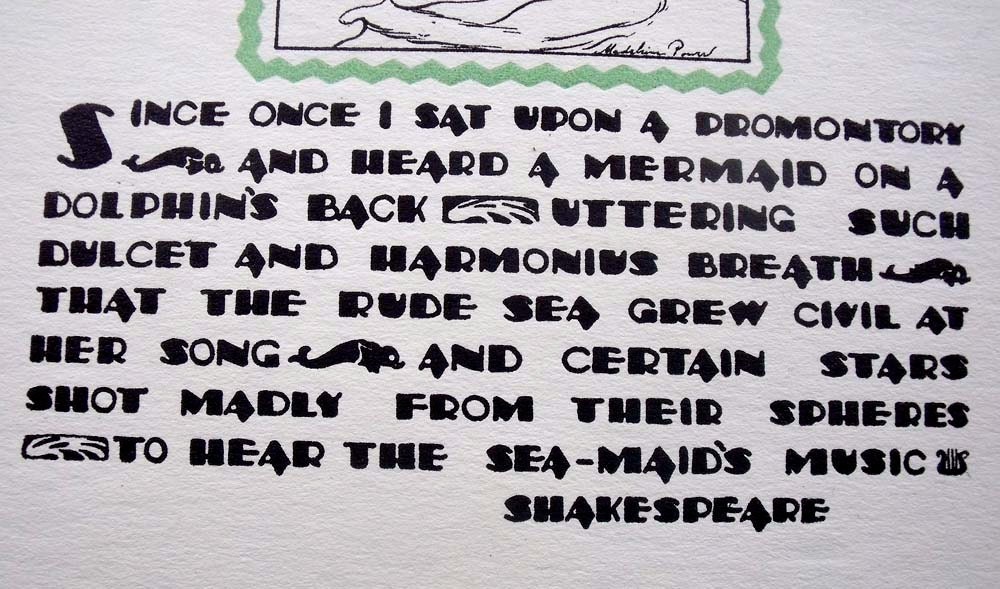 Madeline Power
SINCE ONCE I SAT UPON A DROMONTORY
AND HEARD A MERMAID ON A
DOLPHIN'S BACK UTTERING SUCH
DULCET AND HARMONIUS BREATH
THAT THE RUDE SEA GREW CIVIL AT
HER SONG AND CERTAIN STARS
SHOT MADLY FROM THEIR SPHERES
TO HEAR THE SEA-MAID'S MUSIC
SHAKESPEARE